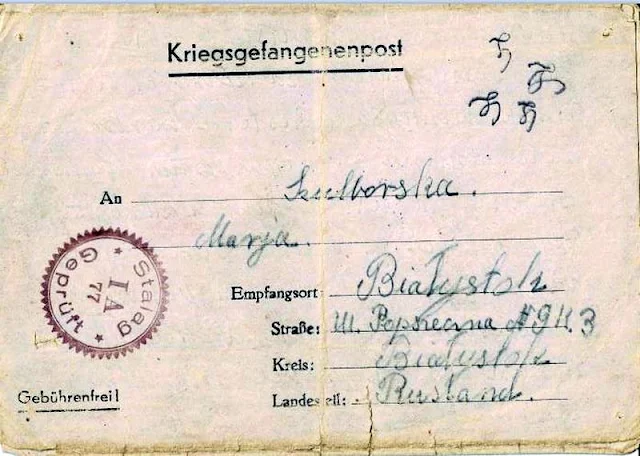 Kriegsgefangenenpost
An Szulborska.
Marja.
Empfangsort: Białystok
Straße: Ul. Poprzeczna № 9 K 3
Kreis: Białystok
Landesteil: Rusland.
Gebührenfrei!
Stalag IA 77 Geprüft